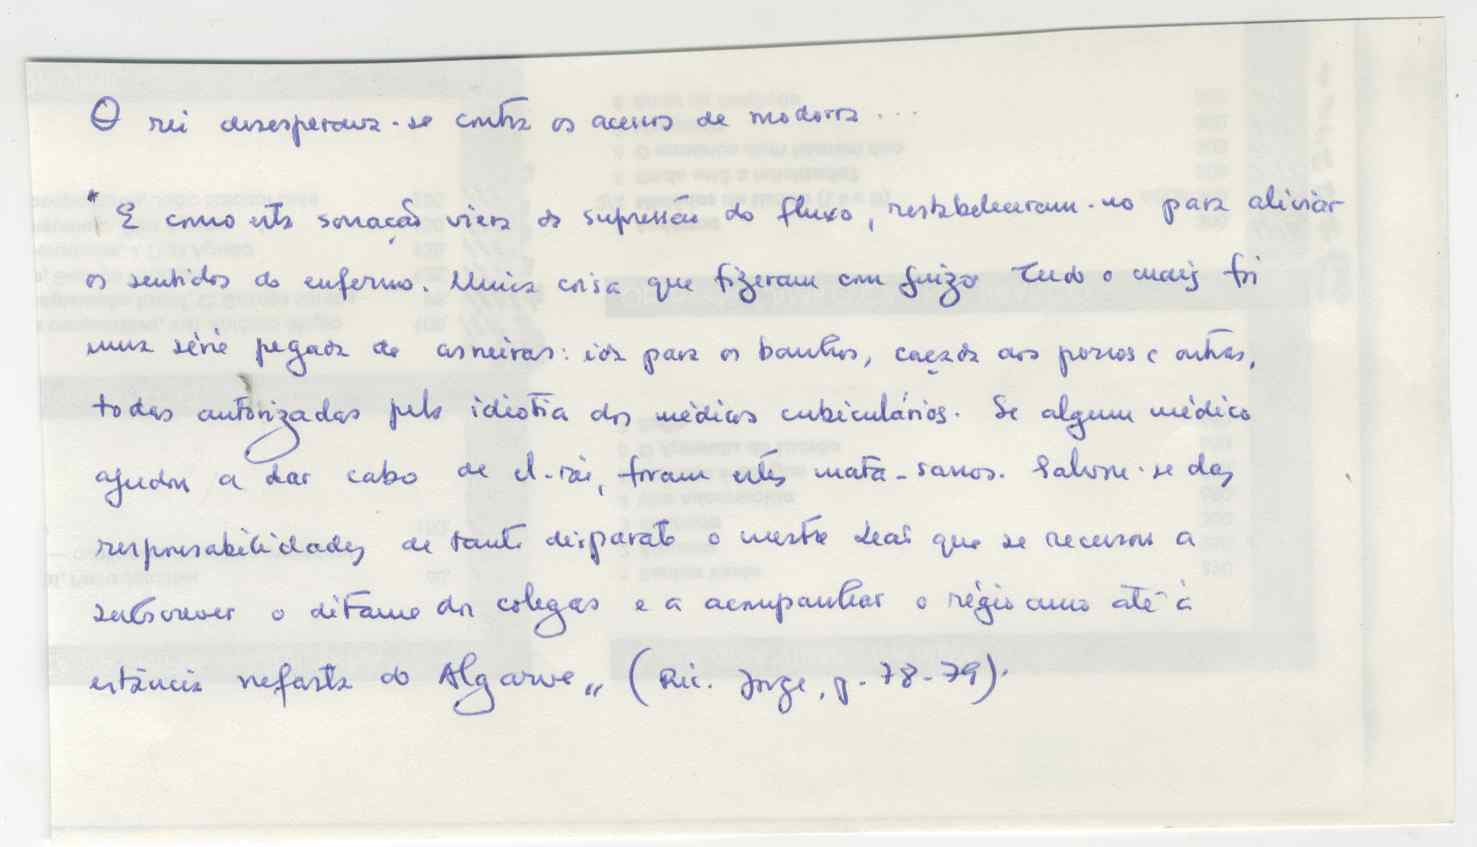 O rei desesperava-se contra os acessos de modorra...
"E como esta sonação viera da supressão do fluxo, restabeleceram-no para aliviar
os sentidos do enfermo. Única coisa que fizeram com juizo Tudo o mais foi
uma série pegada de asneiras: ida para os banhos, caçada aos porcos e outras,
todas autorizadas pela idiotia dos médicos cubiculários. Se algum médico
ajudou a dar cabo de el-rei, foram estes mata-sanos. Salvou-se das
responsabilidades de tanto disparate o mestre Leal que se recusou a
subscrever o ditame dos colegas e a acompanhar o régio amo até à
estância nefasta do Algarve" (Ric. Jorge, p. 78-79).